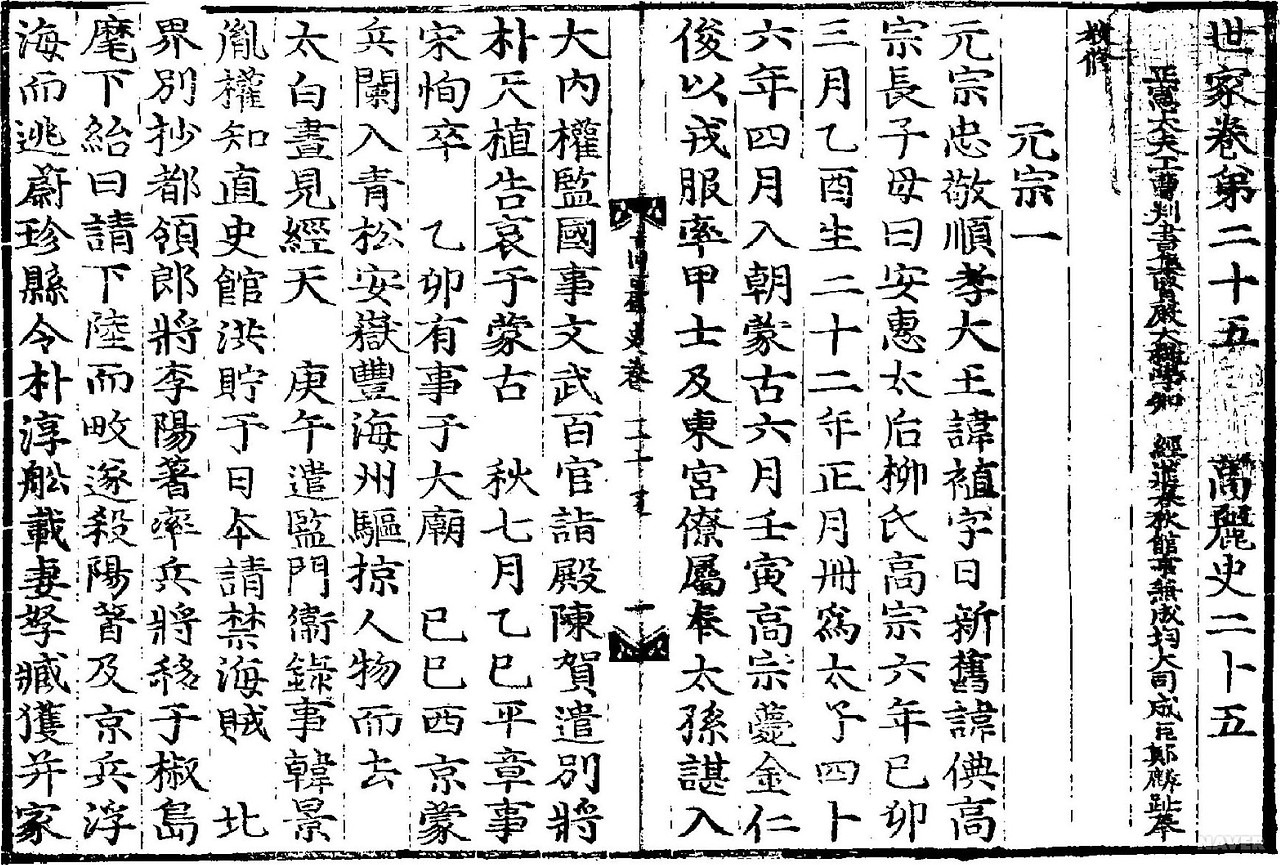 世家卷第二十五 高麗史二十五
正憲大夫工曹判書集賢殿大提學知 經筵春秋館事兼成均大司成臣鄭麟趾奉
教修
元宗一
元宗忠敬順孝大王諱禃字日新舊諱倎高
宗長子母曰安惠太后柳氏高宗六年己卯
三月乙酉生二十二年正月冊爲太子四十
六年四月入朝蒙古六月壬寅高宗薨金仁
俊以戎服率甲士及東宮僚屬奉太孫諶入
高麗史卷二十五 一
大內權監國事文武百官詣殿陳賀遣別將
朴天植告哀于蒙古 秋七月乙巳平章事
宋恂卒 乙卯有事于大廟 己巳西京蒙
兵闌入青松安嶽豐海州驅掠人物而去
太白晝見經天 庚午遣監門衛錄事韓景
胤權知直史館洪貯于日本請禁海賊 北
界別抄都領郎將李陽著率兵將移于椒島
麾下紿曰請下陸而畋遂殺陽著及京兵浮
海而逃蔚珍縣令朴淳船載妻孥臧獲并家
NAVER